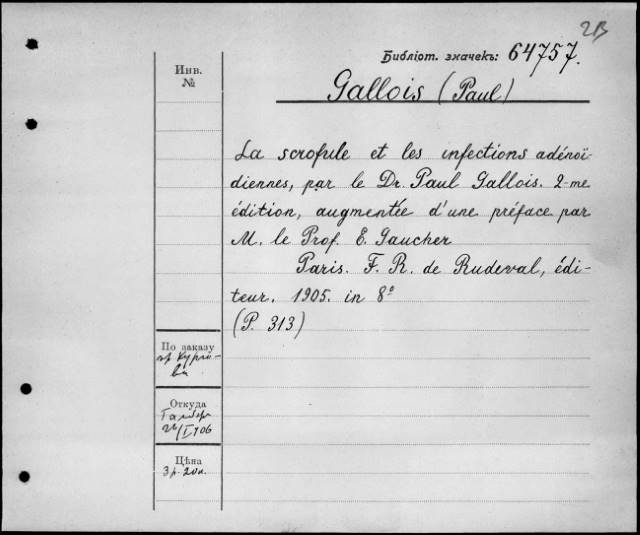 2В
Библіот. значекъ: 64757.
Инв.
№
Gallois (Paul)
La scrofule et les infections adénoï-
diennes, par le Dr. Paul Gallois. 2-me
édition, augmentée d'une préface par
M. le Prof. E. Gaucher
Paris. F. R. de Rudeval, édi-
teur. 1905. in 8º
(P. 313)
По заказу
Откуда
I 906
Цѣна
3 р. 20 к.